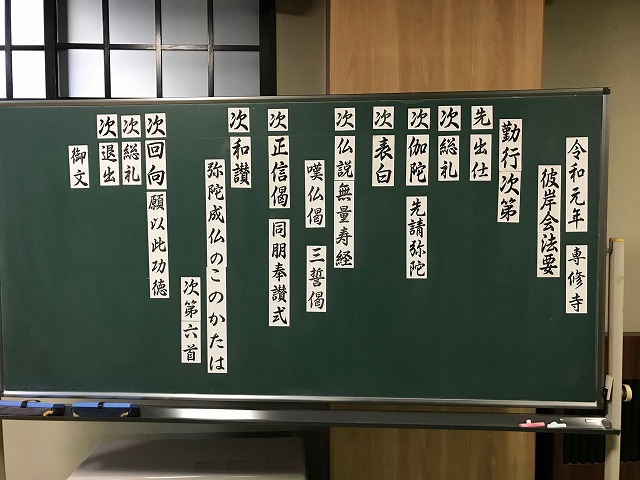 令和元年 専修寺
彼岸会法要
勤行次第
先 出仕
次 総礼
次 伽陀 先請弥陀
次 表白
次 仏説無量寿経
嘆仏偈 三誓偈
次 正信偈 同朋奉讃式
次 和讃
弥陀成仏のこのかたは
次第六首
次 回向 願以此功徳
次 総礼
次 退出
御文